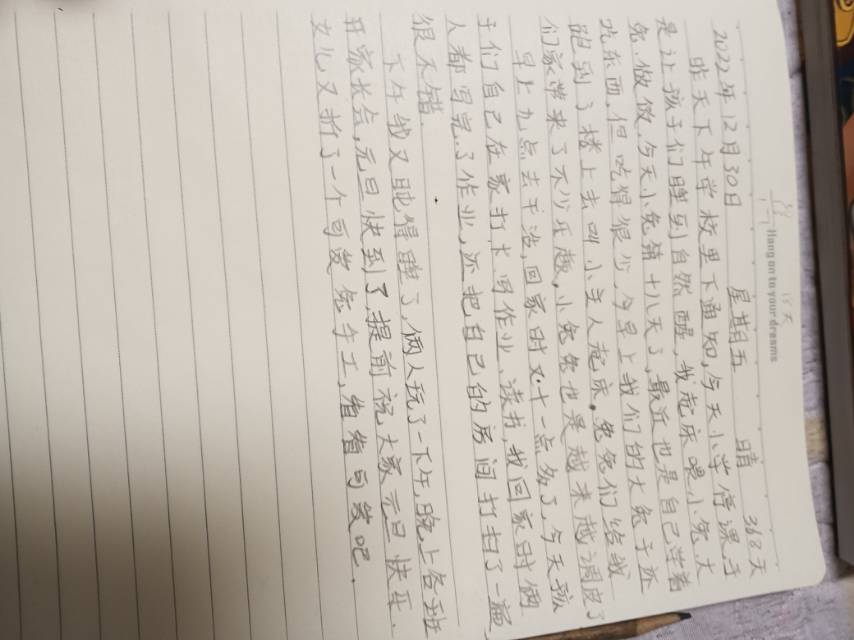 Hang on to your dreams
2022年12月30日 星期五 晴 368天
昨天下午学校里下通知,今天小学停课于
是让孩子们睡到自然醒,我起床喂小兔大
兔.做饭.今天小兔满十八天了,最近也是自己学着
吃东西,但吃得很少,今早上我们的大兔子还
跑到了楼上去叫小主人起床。兔兔们给我
们家带来了不少乐趣,小兔兔也是越来越调皮了
早上九点去干活,回家时又十一点多了,今天孩
子们自己在家打卡写作业、读书,我回家时俩
人都写完了作业,还把自己的房间打扫了一遍,
很不错.
下午我又眈得睡了,俩人玩了一下午,晚上各班
开家长会,元旦快到了提前祝大家元旦快乐.
女儿又折了一个可爱兔手工,看看可爱吧.